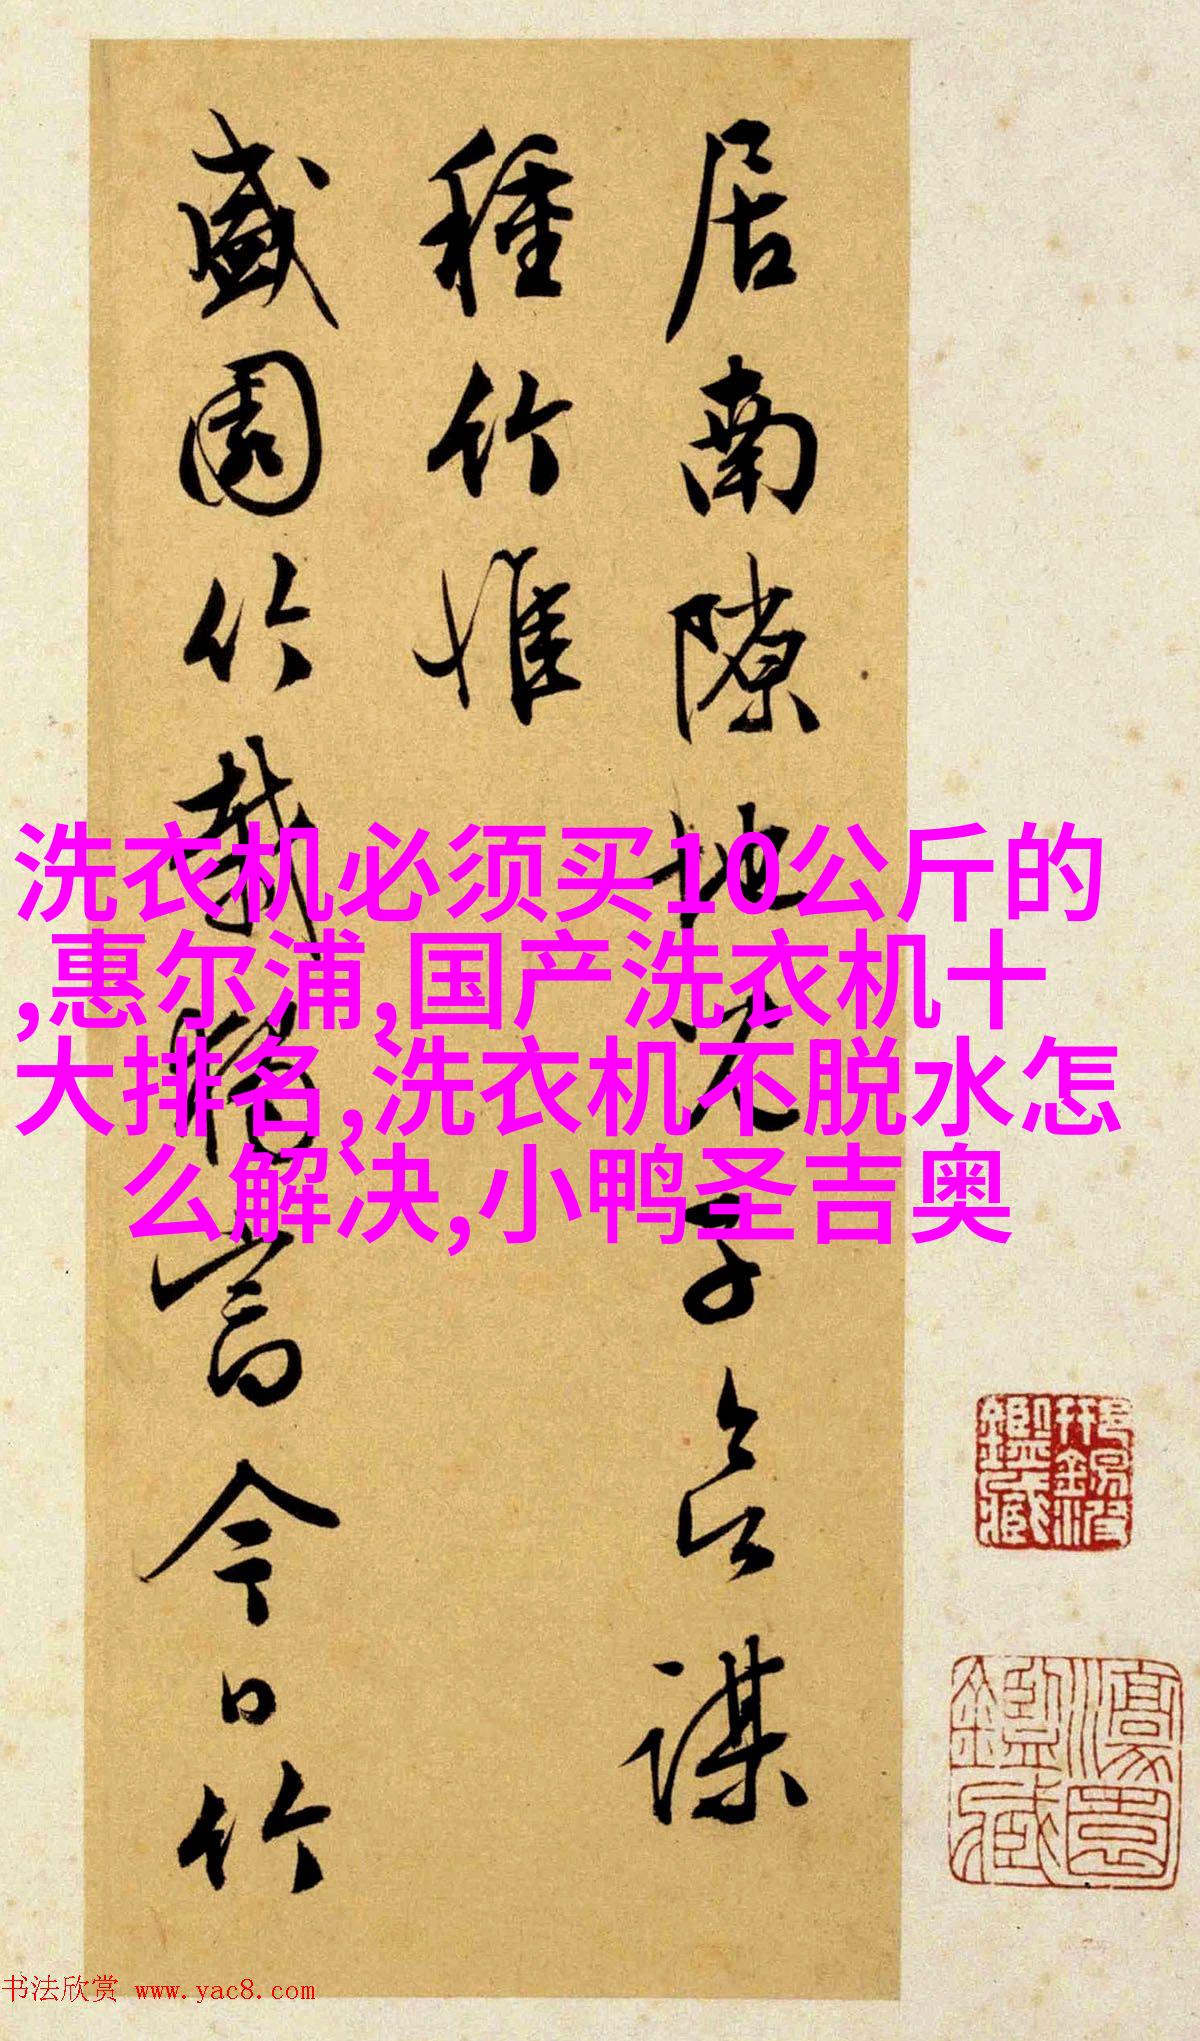 居南隙地子謀
種竹惟
盛園竹今日竹
洗衣机必须买10公斤的
,惠尔浦,国产洗衣机十
大排名,洗衣机不脱水怎
么解决,小鸭圣吉奥
鑑藏
鑑藏
书法欣赏 www.yac8.com